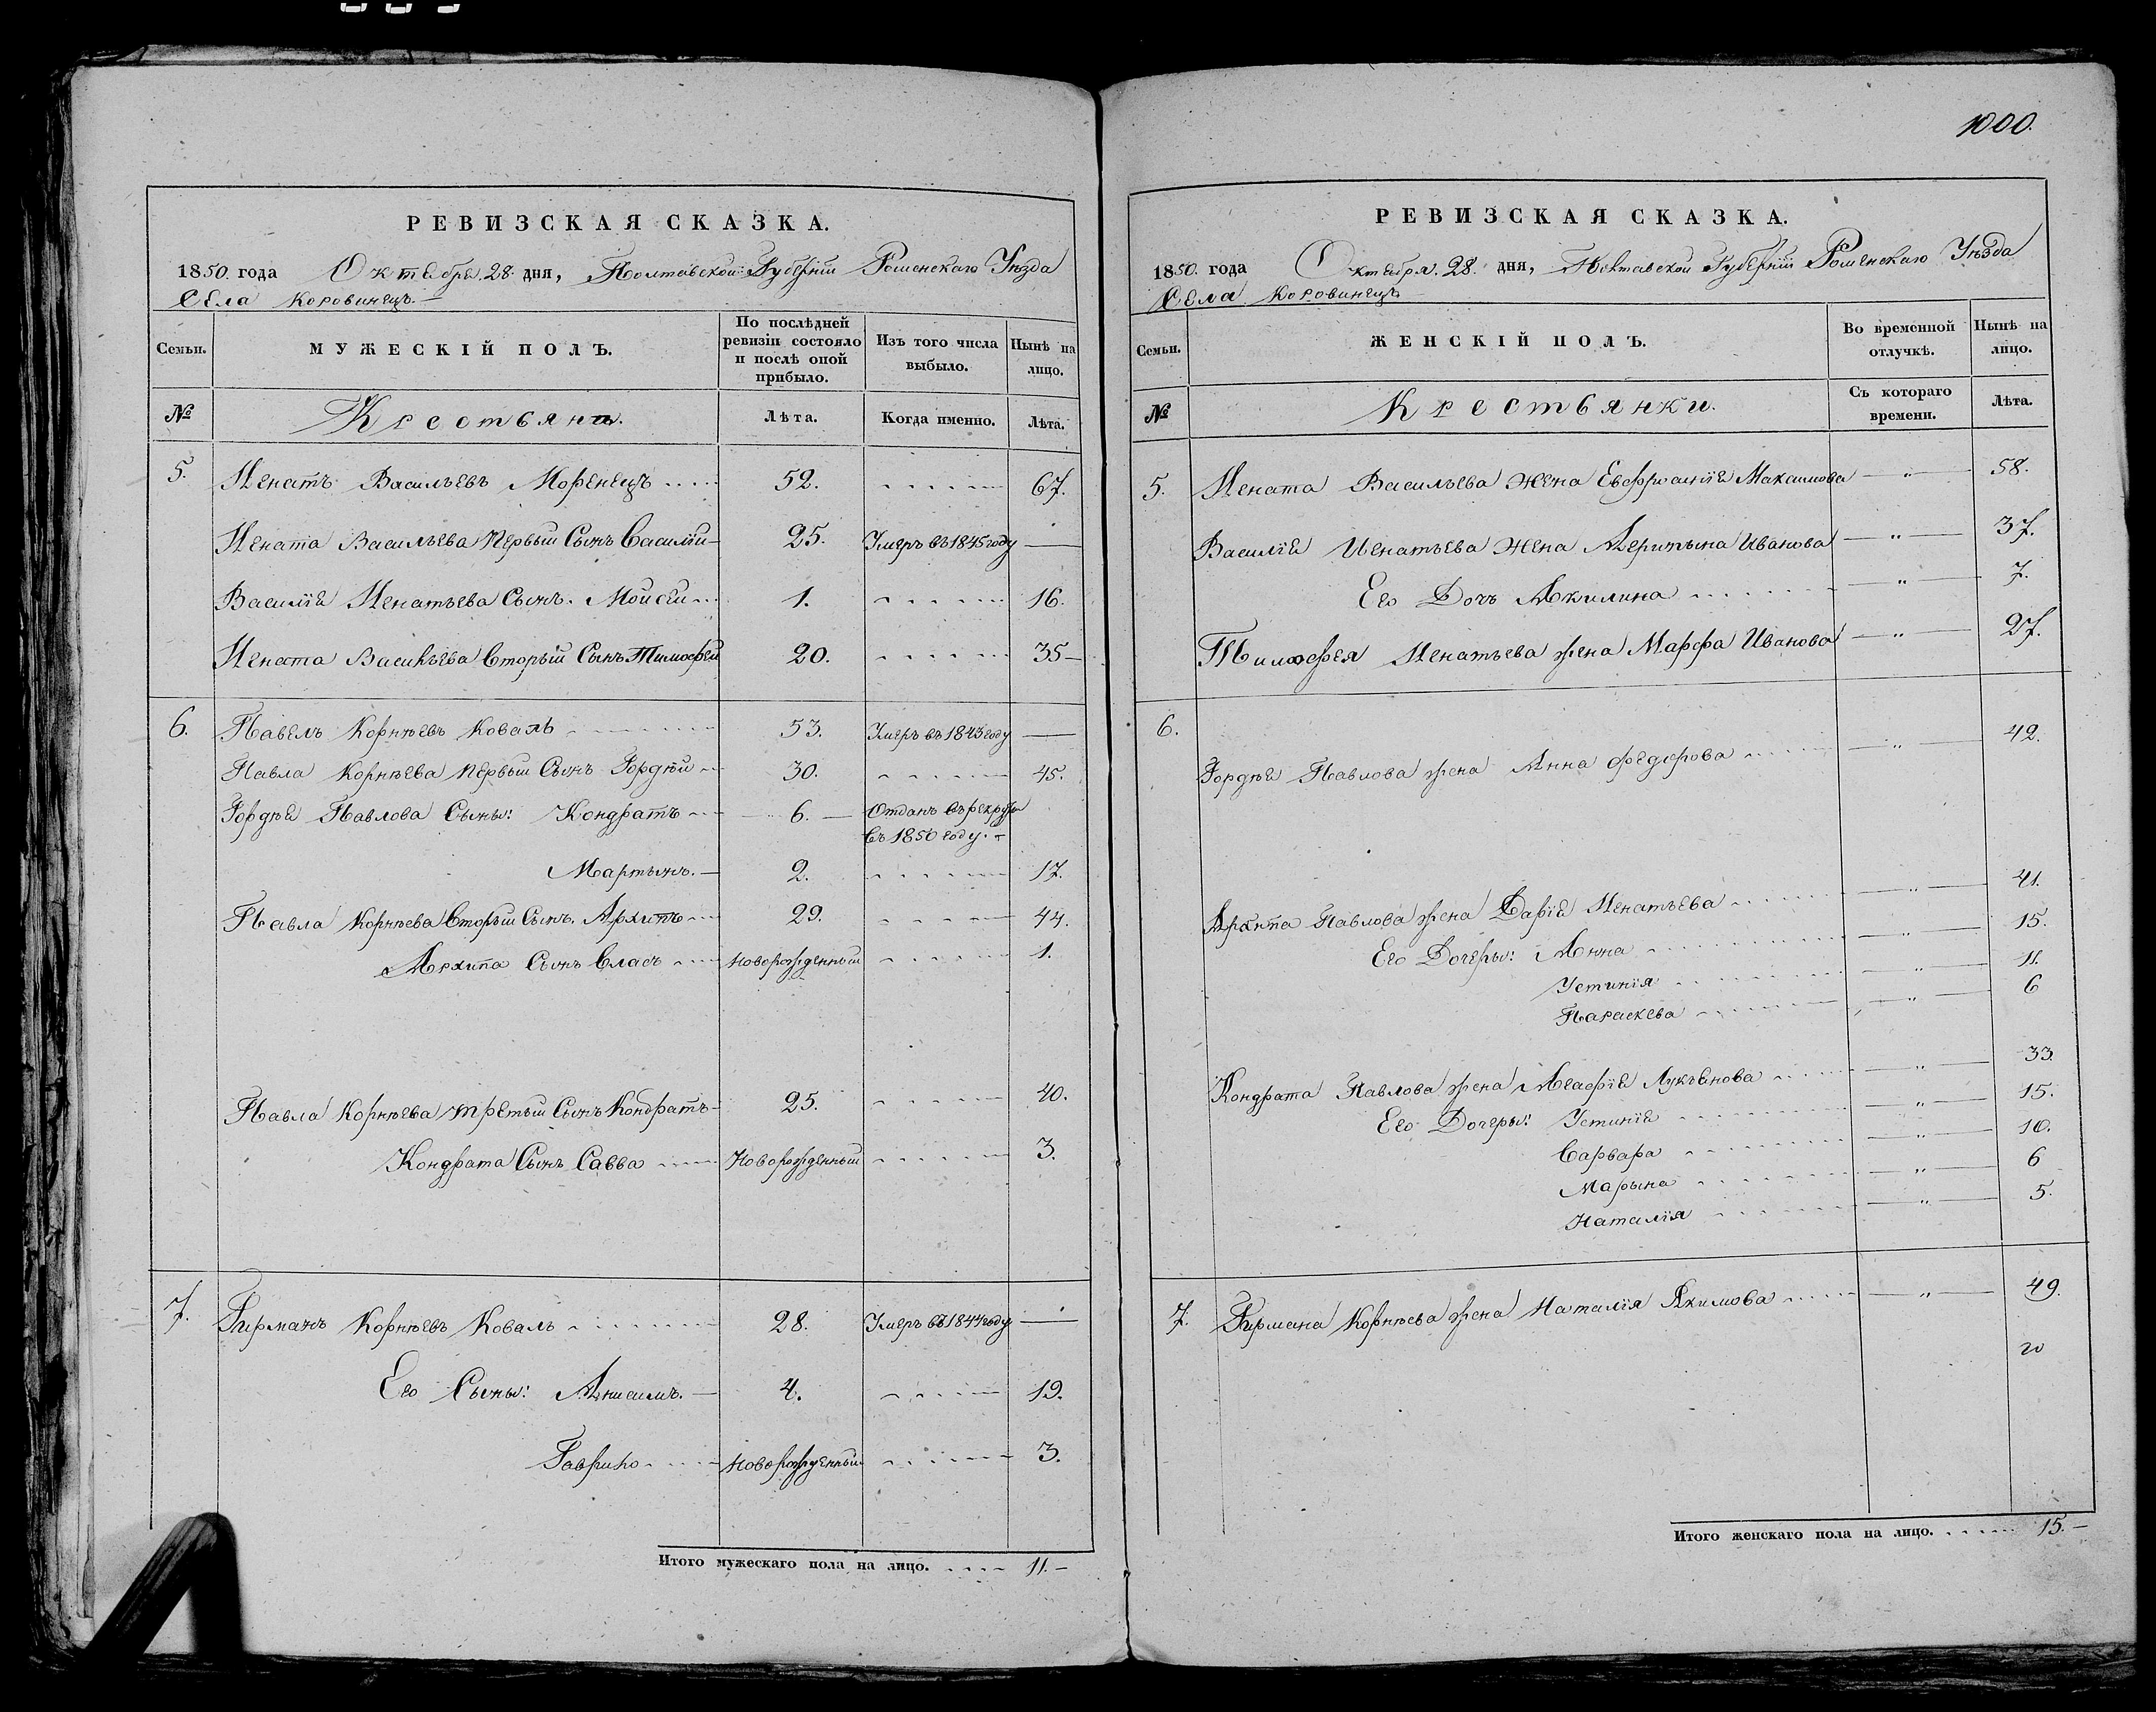 РЕВИЗСКАЯ СКАЗКА.
1850. года Октебря. 28. дня, Полтавской Губерніи Роменскаго Уѣзда
Села Коровинецъ.
Семьи.
МУЖЕСКІЙ ПОЛЪ.
По послѣдней ревизіи состояло и послѣ оной прибыло.
Изъ того числа выбыло.
Нынѣ на лицо.
№ Крестьяни. Лѣта. Когда именно. Лѣта.
5. Игнатъ Васильевъ Моренецъ 52. 67.
Игната Васильева Первый Сынъ Василій 25. Умеръ въ 1845 году —
Василіе Игнатьева Сынъ. Мойсей 1. 16.
Игната Васильева Вторый Сынъ Тимофей 20. 35
6. Павелъ Корнѣевъ Коваль 53. Умеръ въ 1843 году —
Павла Корнѣева Первый Сынъ Гордѣй 30. 45.
Гордѣе Павлова Сыны: Кондратъ 6. Отданъ въ рекруты
въ 1850 году.
Мартынъ. 2. 17.
Павла Корнѣева Вторый Сынъ. Архипъ 29. 44.
Архипа Сынъ Власъ новорожденный 1.
Павла Корнѣева третый Сынъ Кондратъ 25. 40.
Кондрата Сынъ Савва Новорожденный 3.
7. Гирманъ Корнѣевъ Коваль 28. Умеръ въ 1844 году —
Его Сыны: Анисимъ. 4. 19.
новорожденный 3.
Итого мужескаго пола на лицо. 11.
1000.
РЕВИЗСКАЯ СКАЗКА.
1850. года Октебря. 28. дня, Полтавской Губерніи Роменскаго Уѣзда
Села Коровинецъ
Семьи.
ЖЕНСКІЙ ПОЛЪ.
Во временной отлучкѣ.
Нынѣ на лицо.
№ Крестьянки. Съ котораго времени. Лѣта.
5. Игната Васильева Жена Евфросиніе Максимова — „ — 58.
Василіе Игнатьева Жена Иванова — „ — 37.
Его Дочь Акилина — „ — 7.
Тимофея Игнатьева жена Марфа Иванова — „ — 27.
6.
Гордѣе Павлова жена Анна Федорова — „ — 42.
Архипа Павлова жена Даріе Игнатьева — „ — 41.
Его Дочеры: Анна — „ — 15.
Устинія — „ — 11.
Параскева — „ — 6
Кондрата Павлова жена Агафіе Лукьянова — „ — 33.
Его Дочеры: Устиніе — „ — 15.
Варвара — „ — 10.
Марына — „ — 6
Наталія — „ — 5.
7. Гирмана Корнѣева жена Наталія Якимова — „ — 49.
Итого женскаго пола на лицо. 15.